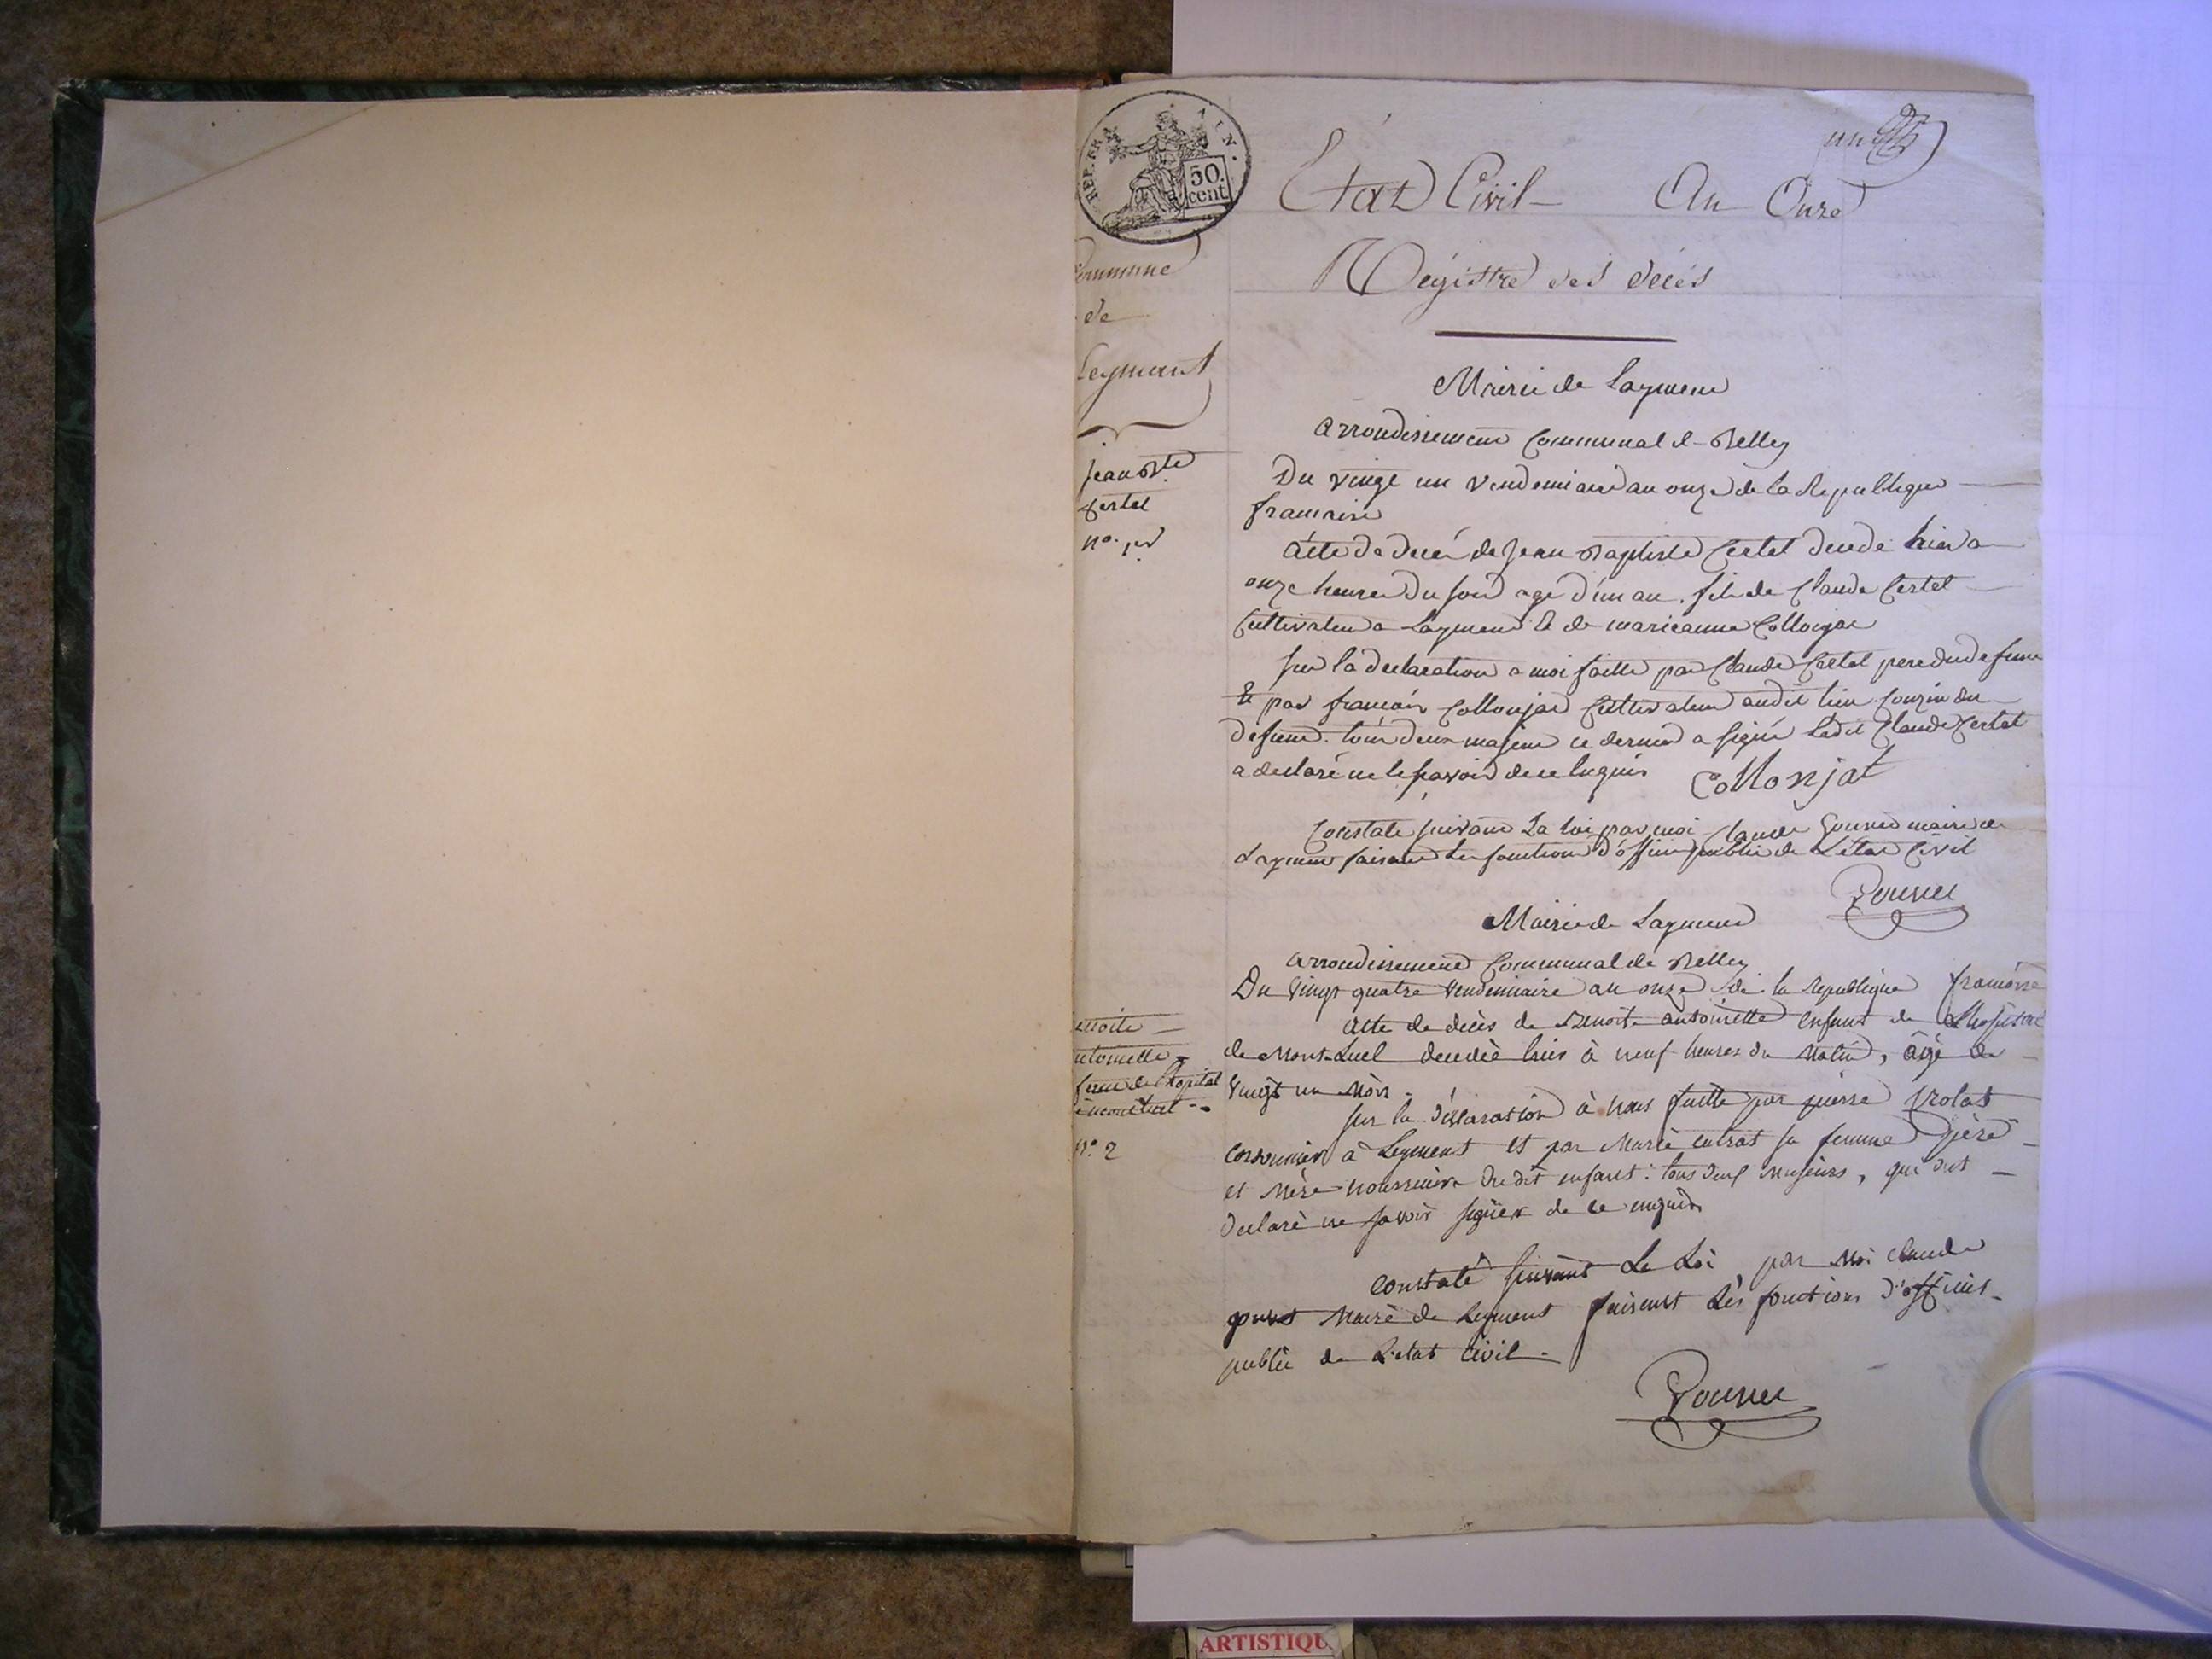 REP. FRA. AIN.
50.
cent
un
Etat Civil - An Onze
Régistre des décés
Commune
de
Leymant
Mairie de Laymens
arrondissement Communal de Belley
Jean Bte
Certel
n°. 1er
Du vingt un vendemiaire an onze de la Republique
francaise
Acte de decés de Jean Baptiste Certel decede hier a
onze heures du soir agé d'un an. fils de Claude Certel
Cultivateur a Laymens & de marieanne Collonjat
sur la declaration a moi faitte par Claude Certel pere du defunt
& par francois Collonjat Cultivateur audit lieu Couzin du
defunt. tous deux majeurs ce dernier a signé Ledit Claude Certel
a declaré ne le savoir de ce Enquis
Collonjat
Constaté suivant La Loi par moi Claude maire de
Laymens faisant Les fonctions d'officier public de L'état Civil
Mairie de Laymens
arrondissement Communal de Belley
Du vingt quatre vendemiaire an onze de la Republique francaise
enoite
ntoinette
de L'hopital
n°. 2
Acte de décès de Benoite antoinette enfant de Lhopital
de MontLuel decedée hier à neuf heures du Matin, âgé de
vingt un Mois.
sur la Déclaration à nous faitte par pierre
cordonnier à Leyment et par Marie sa femme père
et Mère nourriciers dudit enfant: tous deux Majeurs, qui ont
declaré ne savoir signer de ce enquis
constaté suivant La Loi par Moi claude
Maire de Leyment faisant Les fonctions d'officier
public de L'état civil.
ARTISTIQU